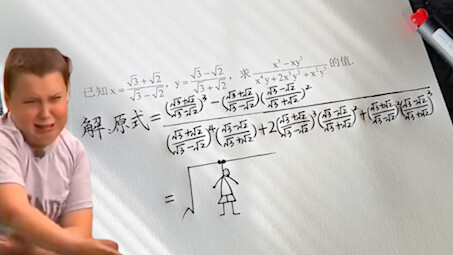 已知 x = (√3+√2)/(√3-√2), y = (√3-√2)/(√3+√2), 求 (x³-xy²)/(x⁴y+2x³y²+x²y³) 的值.
解:原式 = [((√3+√2)/(√3-√2))³ - ((√3+√2)/(√3-√2))((√3-√2)/(√3+√2))²] / [((√3+√2)/(√3-√2))⁴((√3-√2)/(√3+√2)) + 2((√3+√2)/(√3-√2))³((√3-√2)/(√3+√2))² + ((√3+√2)/(√3-√2))²((√3-√2)/(√3+√2))³]
= √